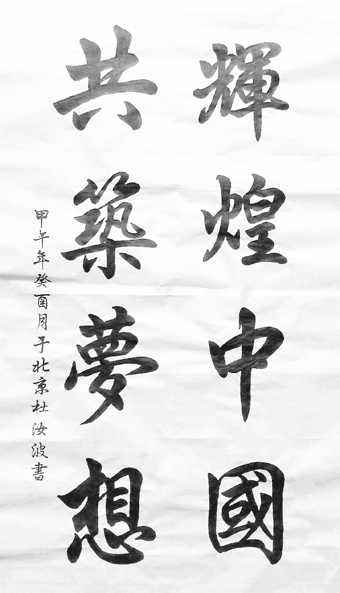 輝煌中國
共築夢想
甲午年癸酉月于北京杜汝波書